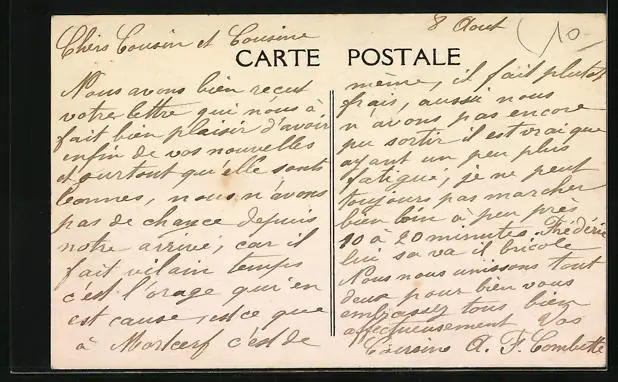 8 Aout
10
Chers Cousin et Cousine
CARTE POSTALE
Nous avons bien recut
votre lettre qui nous à
fait bien plaisir d'avoir
enfin de vos nouvelles
et surtout qu'elle sont
bonnes, nous n'avons
pas de chance depuis
notre arrivé, car il
fait vilain temps
c'est l'orage qui en
est cause, est ce que
à Mortcerf c'est de
même, il fait plutot
frais, aussi nous
n'avons pas encore
pu sortir il est vrai que
ayant un peu plus
fatigué, je ne peut
toujours pas marcher
bien loin à peu près
10 à 20 minutes. Frédéric
lui sa va il bricole
Nous nous unissons tout
deux pour bien vous
embrasser tous bien
affectueusement Vos
Cousins A. F. Combette